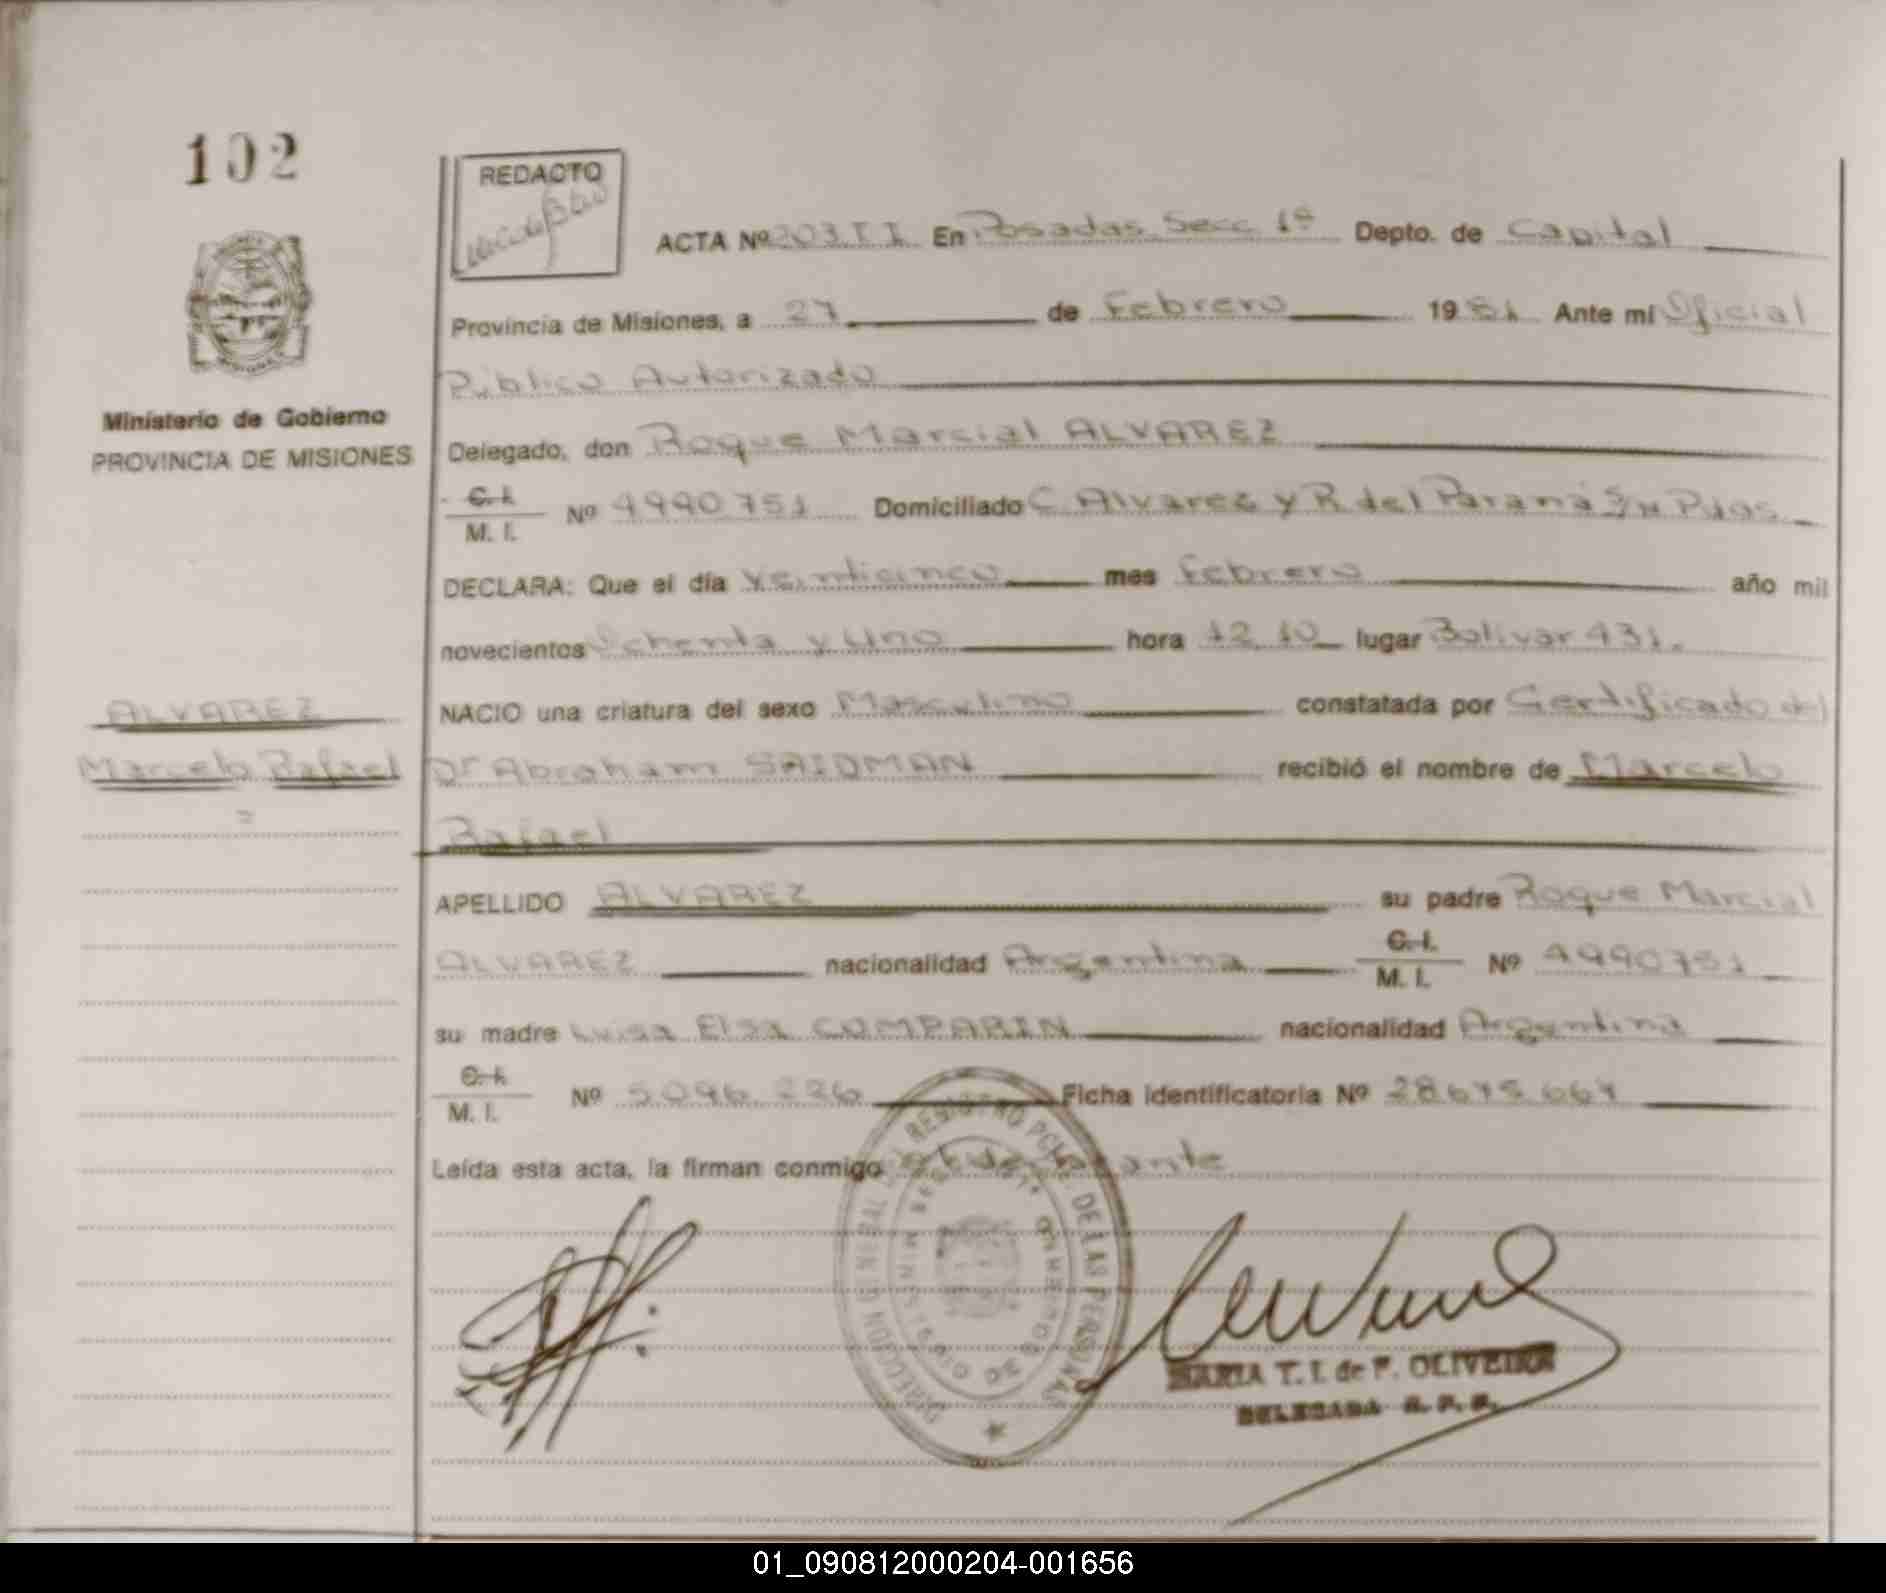 102
REDACTO
ACTA Nº 203 II En Posadas Secc 1ª Depto. de Capital
Provincia de Misiones, a 27 de Febrero 1981 Ante mi Oficial
Público Autorizado
Ministerio de Gobierno
PROVINCIA DE MISIONES
Delegado, don Roque Marcial ALVAREZ
C. I. M. I. Nº 4990751 Domiciliado C. Alvarez y R. del Paraná S/N Pdas.
DECLARA: Que el día veinticinco mes Febrero año mil
novecientos Ochenta y Uno hora 12,10 lugar Bolivar 431.
ALVAREZ
NACIO una criatura del sexo Masculino constatada por Certificado del
Marcelo Rafael
Dr Abraham SAIDMAN recibió el nombre de Marcelo
Rafael
APELLIDO ALVAREZ su padre Roque Marcial
ALVAREZ nacionalidad Argentina C. I. M. I. Nº 4990751
su madre Luisa Elsa COMPARIN nacionalidad Argentina
C. I. M. I. Nº 5096.226 Ficha identificatoria Nº
Leída esta acta, la firman conmigo
DIRECCION GENERAL DEL REGISTRO PCIAL. DE LAS PERSONAS
MINISTERIO DE GOBIERNO
MARIA T. I. de F. OLIVEIRA
DELEGADA R. P. P.
01_090812000204-001656